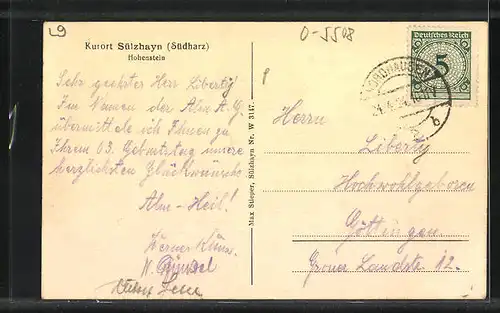 L9
0-5508
Kurort Sülzhayn (Südharz)
Hohenstein
Deutsches Reich
5
NORDHAUSEN
b
Sehr geehrter Herr Liberty!
Im Namen der Alm A.G.
übermittele ich Ihnen zu
Ihrem 63. Geburtstag unsere
herzlichsten Glückwünsche
Alm-Heil!
Werner
W.
Max Stieger, Sülzhayn Nr. W 3147.
Herrn
Liberty
Hochwohlgeboren
Göttingen
Groner Landstr. 12.